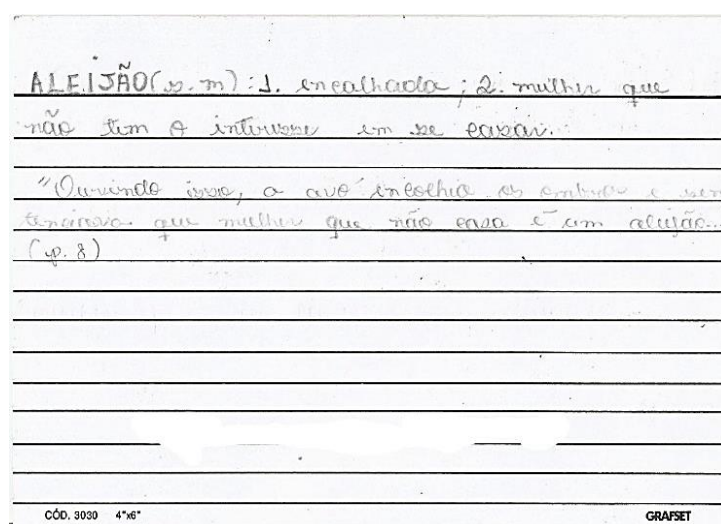 ALEIJÃO (s. m): 1. encalhada; 2. mulher que
não tem o interesse em se casar.
"Ouvindo isso, a avó encolhia os ombros e sen
tenciava que mulher que não casa é um aleijão...
(p. 8)
CÓD. 3030 4"x6" GRAFSET